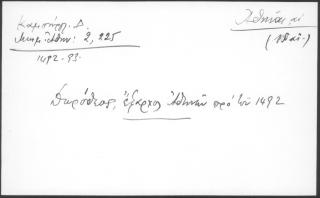 Καμπούρογλ. Δ.
Μνημ. Ἀθην. 2, 225
1492-93.
Ἀθῆναι αἱ
Δωρόθεος, ἔξαρχος Ἀθηνῶν πρὸ τοῦ 1492